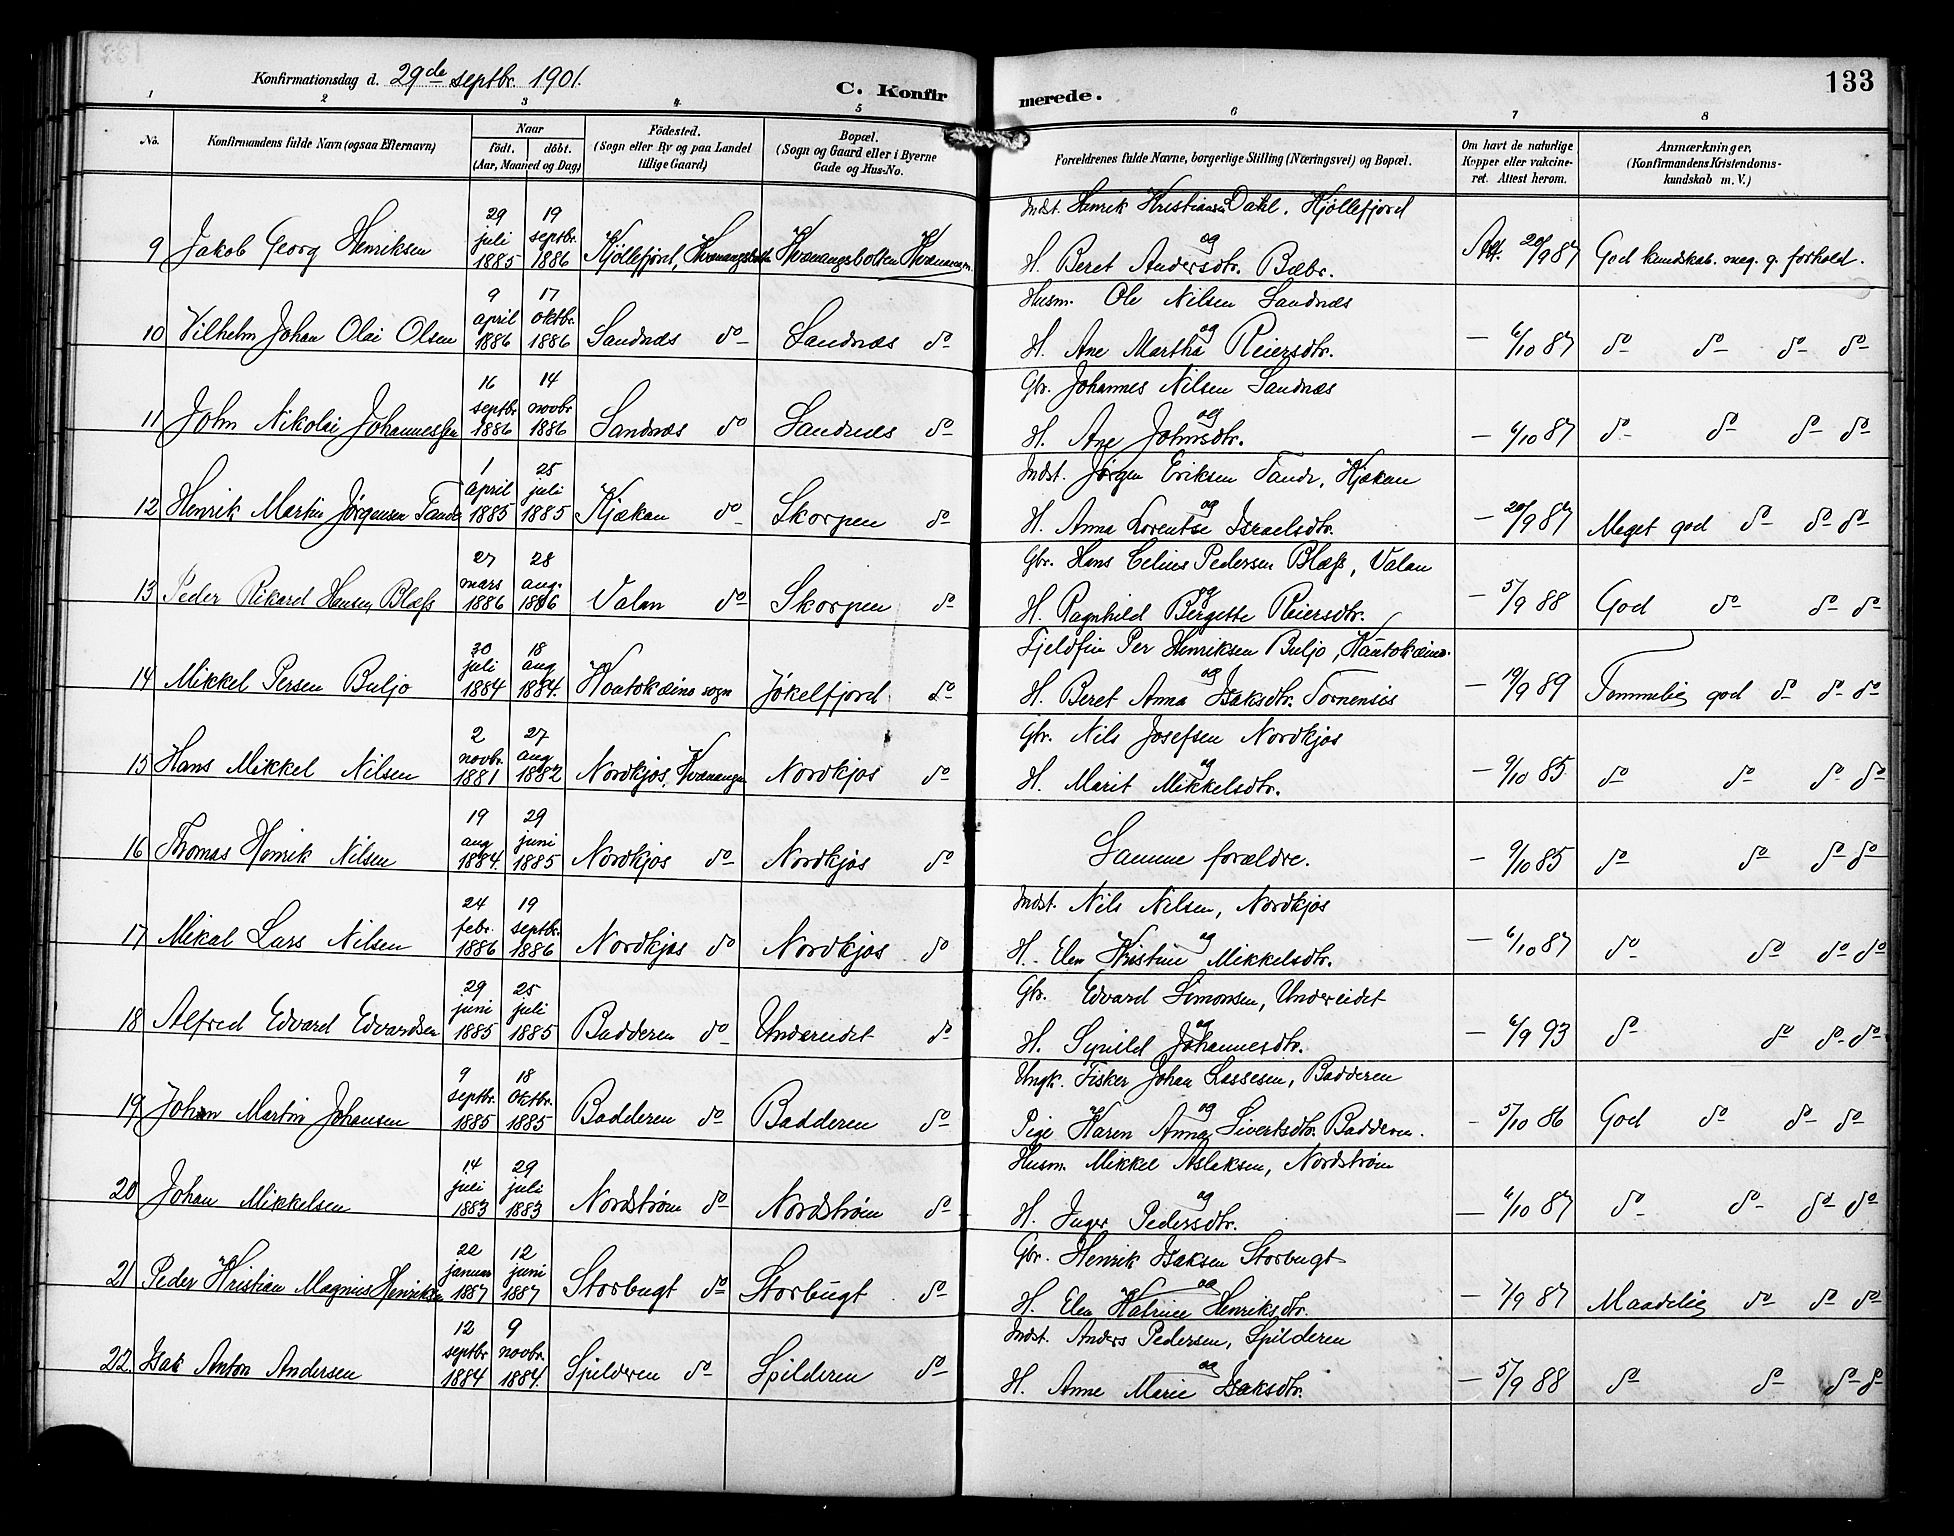 133
Konfirmationsdag d. 29de septbr. 1901.
C. Konfirmerede.
1 2 3 4 5 6 7 8
No.
Konfirmandens fulde Navn (ogsaa Efternavn)
Naar
födt. döbt.
(Aar, Maaned og Dag)
Födested.
(Sogn eller By og paa Landet
tillige Gaard)
Bopæl.
(Sogn og Gaard eller i Byerne
Gade og Hus-No.
Forældrenes fulde Navne, borgerlige Stilling (Næringsvei) og Bopæl.
Om havt de naturlige
Kopper eller vakcine-
ret. Attest herom.
Anmærkninger.
(Konfirmandens Kristendoms-
kundskab m. V.)
Indst. Henrik Kristiansen Dahl, Kjöllefjord
9 Jakob Georg Henriksen 29 juli 1885 19 septbr. 1886 Kjöllefjord, Kvænangsbotn Kvænangsbotten Kvænangen og H. Beret Andersdtr. Bæbr. Att. 20/9 87 God kundskab. meg. g. forhold.
Husm. Ole Nilsen Sandnæs
10 Vilhelm Johan Olai Olsen 9 april 1886 17 oktbr. 1886 Sandnæs do Sandnæs do og H. Ane Martha Reiersdtr. — 6/10 87 do do do do
Gbr. Johannes Nilsen Sandnæs
11 John Nikolai Johannessen 16 septbr 1886 14 novbr 1886 Sandnæs do Sandnæs do og H. Ane Johnsdtr. — 6/10 87 do do do do
Indst. Jørgen Eriksen Tande, Kjækan
12 Henrik Martin Jørgensen Tande 1 april 1885 25 juli 1885 Kjækan do Skorpen do og H. Anna Lorentse Israelsdtr. — 20/9 87 Meget god do do do
Gbr. Hans Celius Pedersen Blæss, Valan
13 Peder Rikard Hansen Blæss 27 mars 1886 28 aug. 1886 Valan do Skorpen do og H. Ragnhild Bergette Reiersdtr. — 5/9 88 God do do do
Fjeldfin Per Henriksen Buljo, Kautokeino.
14 Mikkel Persen Buljo 30 juli 1884 18 aug 1884. Koutokæino sogn Jøkelfjord do og H. Beret Anna Isaksdtr. Tornensis — 19/9 89 Temmelig god do do do
Gbr. Nils Josefsen Nordkjos
15 Hans Mikkel Nilsen 2 novbr. 1881 27 aug 1882 Nordkjos, Kvænangen Nordkjos do og H. Marit Mikkelsdtr. — 9/10 85 do do do do
16 Thomas Henrik Nilsen 19 aug 1884. 29 juni 1885 Nordkjos do Nordkjos do Samme forældre. — 9/10 85 do do do do
Indst. Nils Nilsen, Nordkjos
17 Mikal Lars Nilsen 24 febr. 1886 19 septbr. 1886 Nordkjos do Nordkjos do og H. Elen Kristine Mikkelsdtr. — 6/10 87 do do do do
Gbr. Edvard Simonsen, Undereidet
18 Alfred Edvard Edvardsen 29 juni 1885 25 juli 1885 Badderen do Undereidet do og H. Synild Johannesdtr. — 6/9 93 do do do do
Ungk. Fisker Johan Lassesen, Badderen
19 Johan Martin Johansen 9 septbr. 1885 18 oktbr. 1885 Badderen do Badderen do og Pige Karen Anna Sivertsdtr. Badderen. — 5/10 86 God do do do
Husm. Mikkel Aslaksen, Nordstrøm
20 Johan Mikkelsen 14 juli 1883 29 juli 1883 Nordstrøm do Nordstrøm do og H. Inger Pedersdtr. — 6/10 87 do do do do
Gbr. Henrik Isaksen Storbugt
21 Peder Kristian Magnus Henriksen 22 januar 1887 12 juni 1887 Storbugt do Storbugt do og H. Elen Katrine Henriksdtr. — 7/9 87 Maadelig do do do
Indst. Anders Pedersen, Spilderen
22. Isak Anton Andersen 12 septbr 1884 9 novbr. 1884. Spilderen do Spilderen do og H. Anne Marie Isaksdtr. — 5/9 88 do do do do